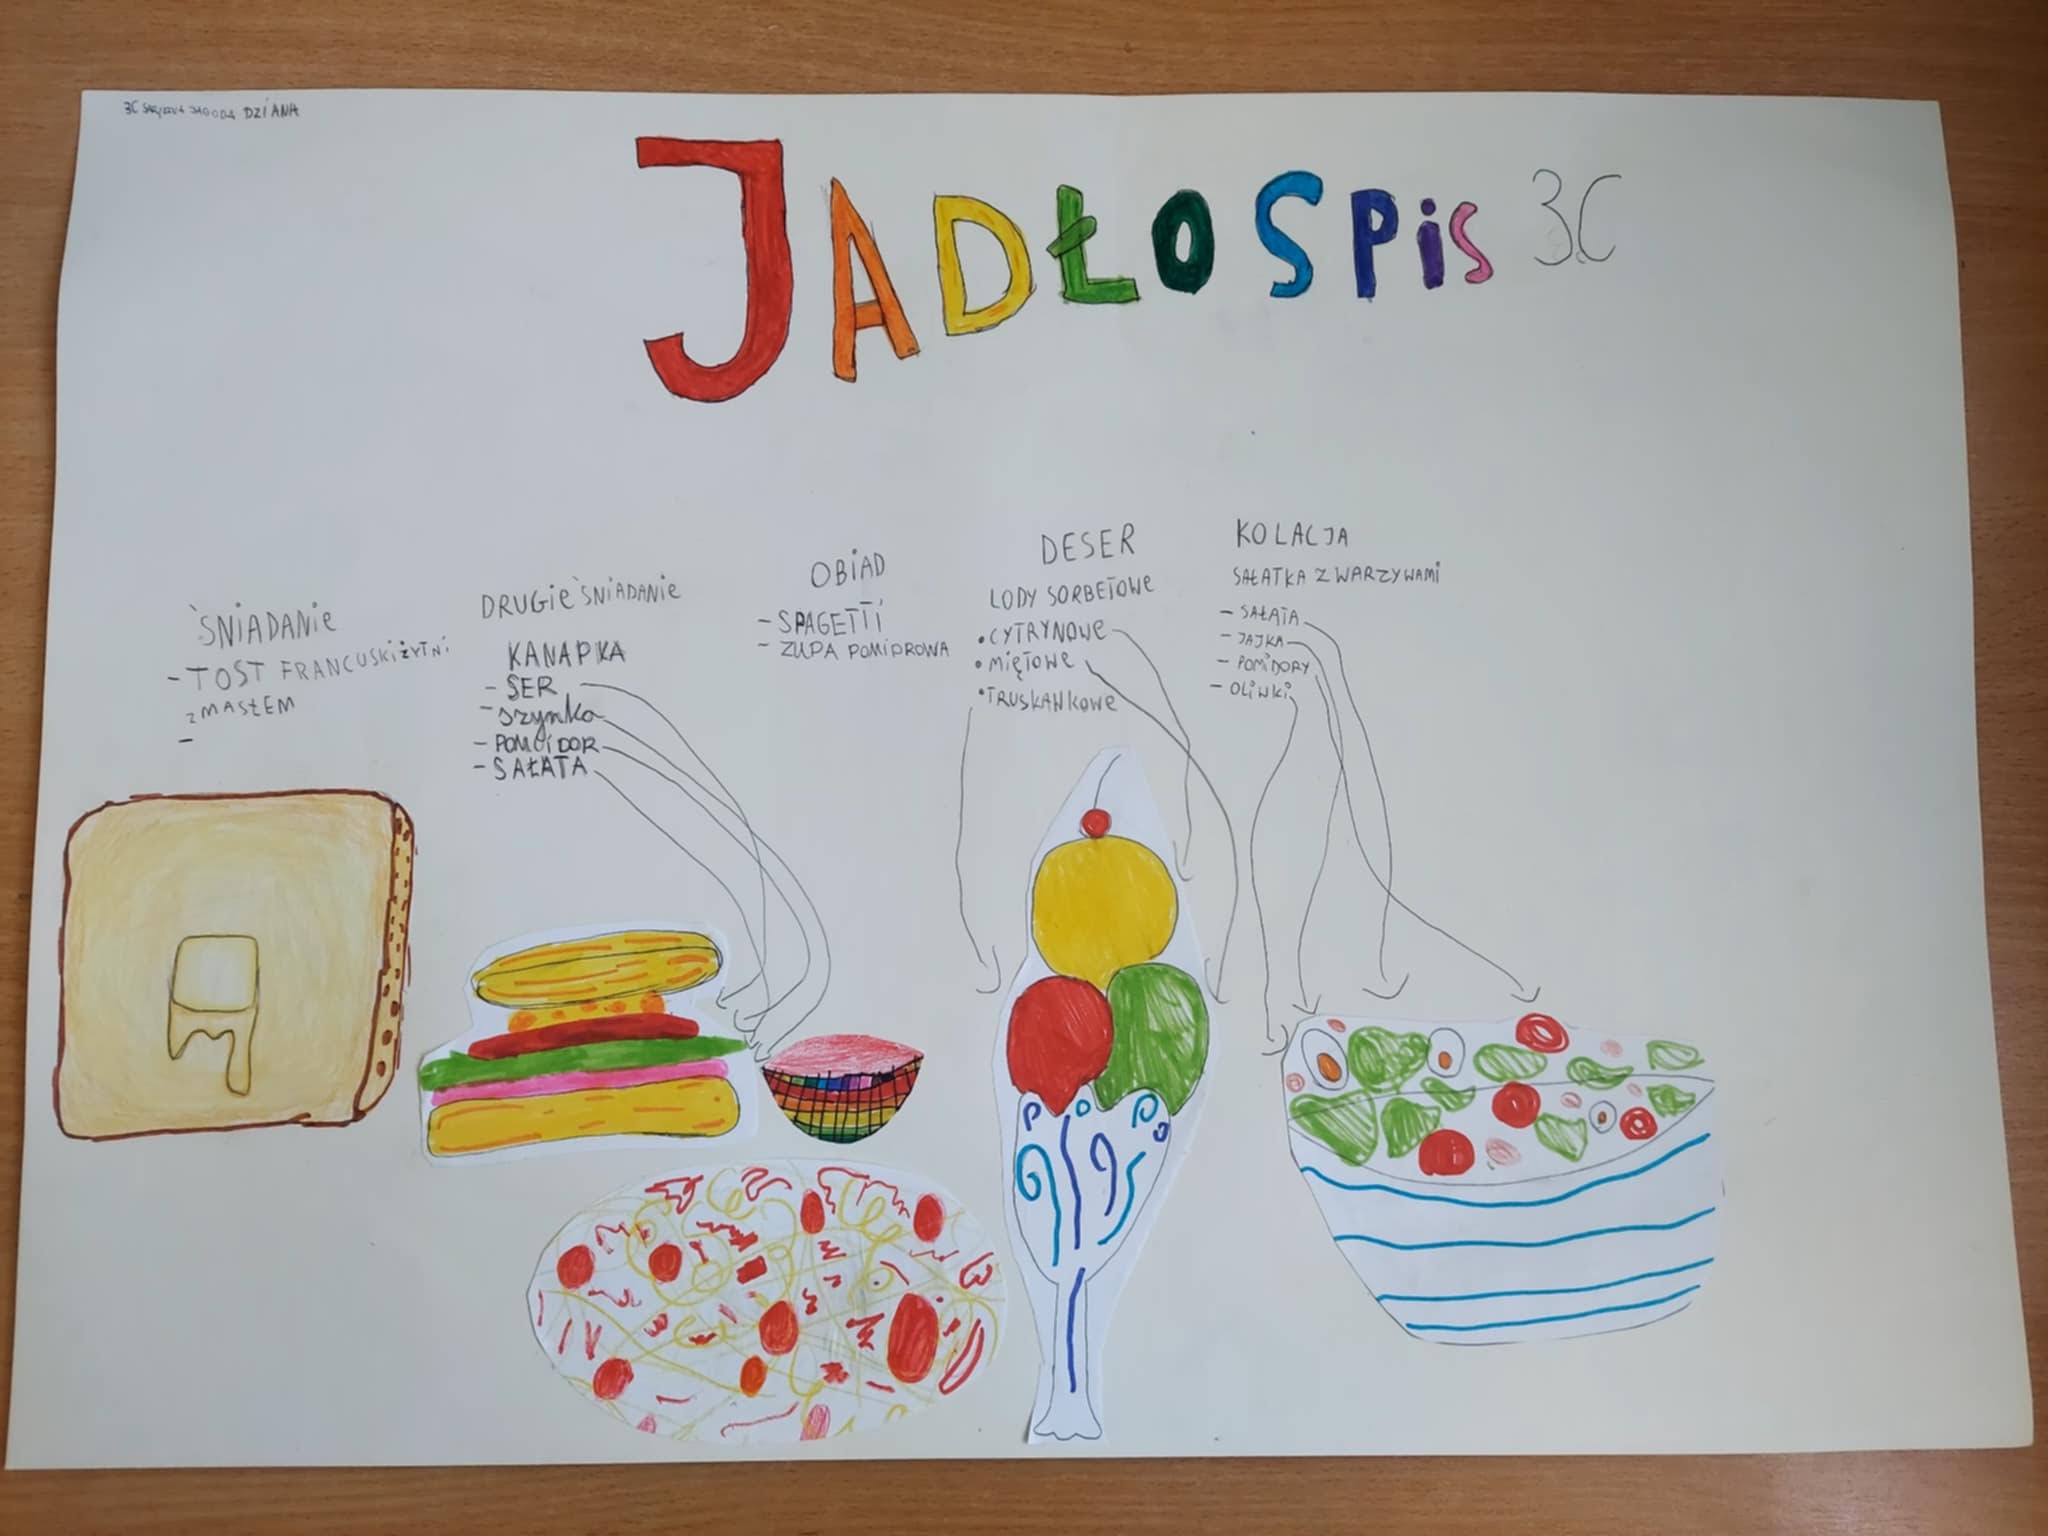 3C JAGODA DZIANA
JADŁOSPIS 3C
ŚNIADANIE
- TOST FRANCUSKI ŻYTNI
Z MASŁEM
-
DRUGIE ŚNIADANIE
KANAPKA
- SER
- szynka
- POMIDOR
- SAŁATA
OBIAD
- SPAGETTI
- ZUPA POMIDROWA
DESER
LODY SORBETOWE
• CYTRYNOWE
• MIĘTOWE
• TRUSKANKOWE
KOLACJA
SAŁATKA Z WARZYWAMI
- SAŁATA
- JAJKA
- POMIDORY
- OLIWKI